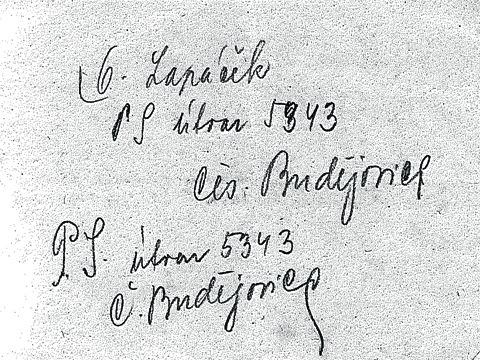 G. Lapáček
PS útvar 5343
Čes. Budějovice
P.S. útvar 5343
Č. Budějovice